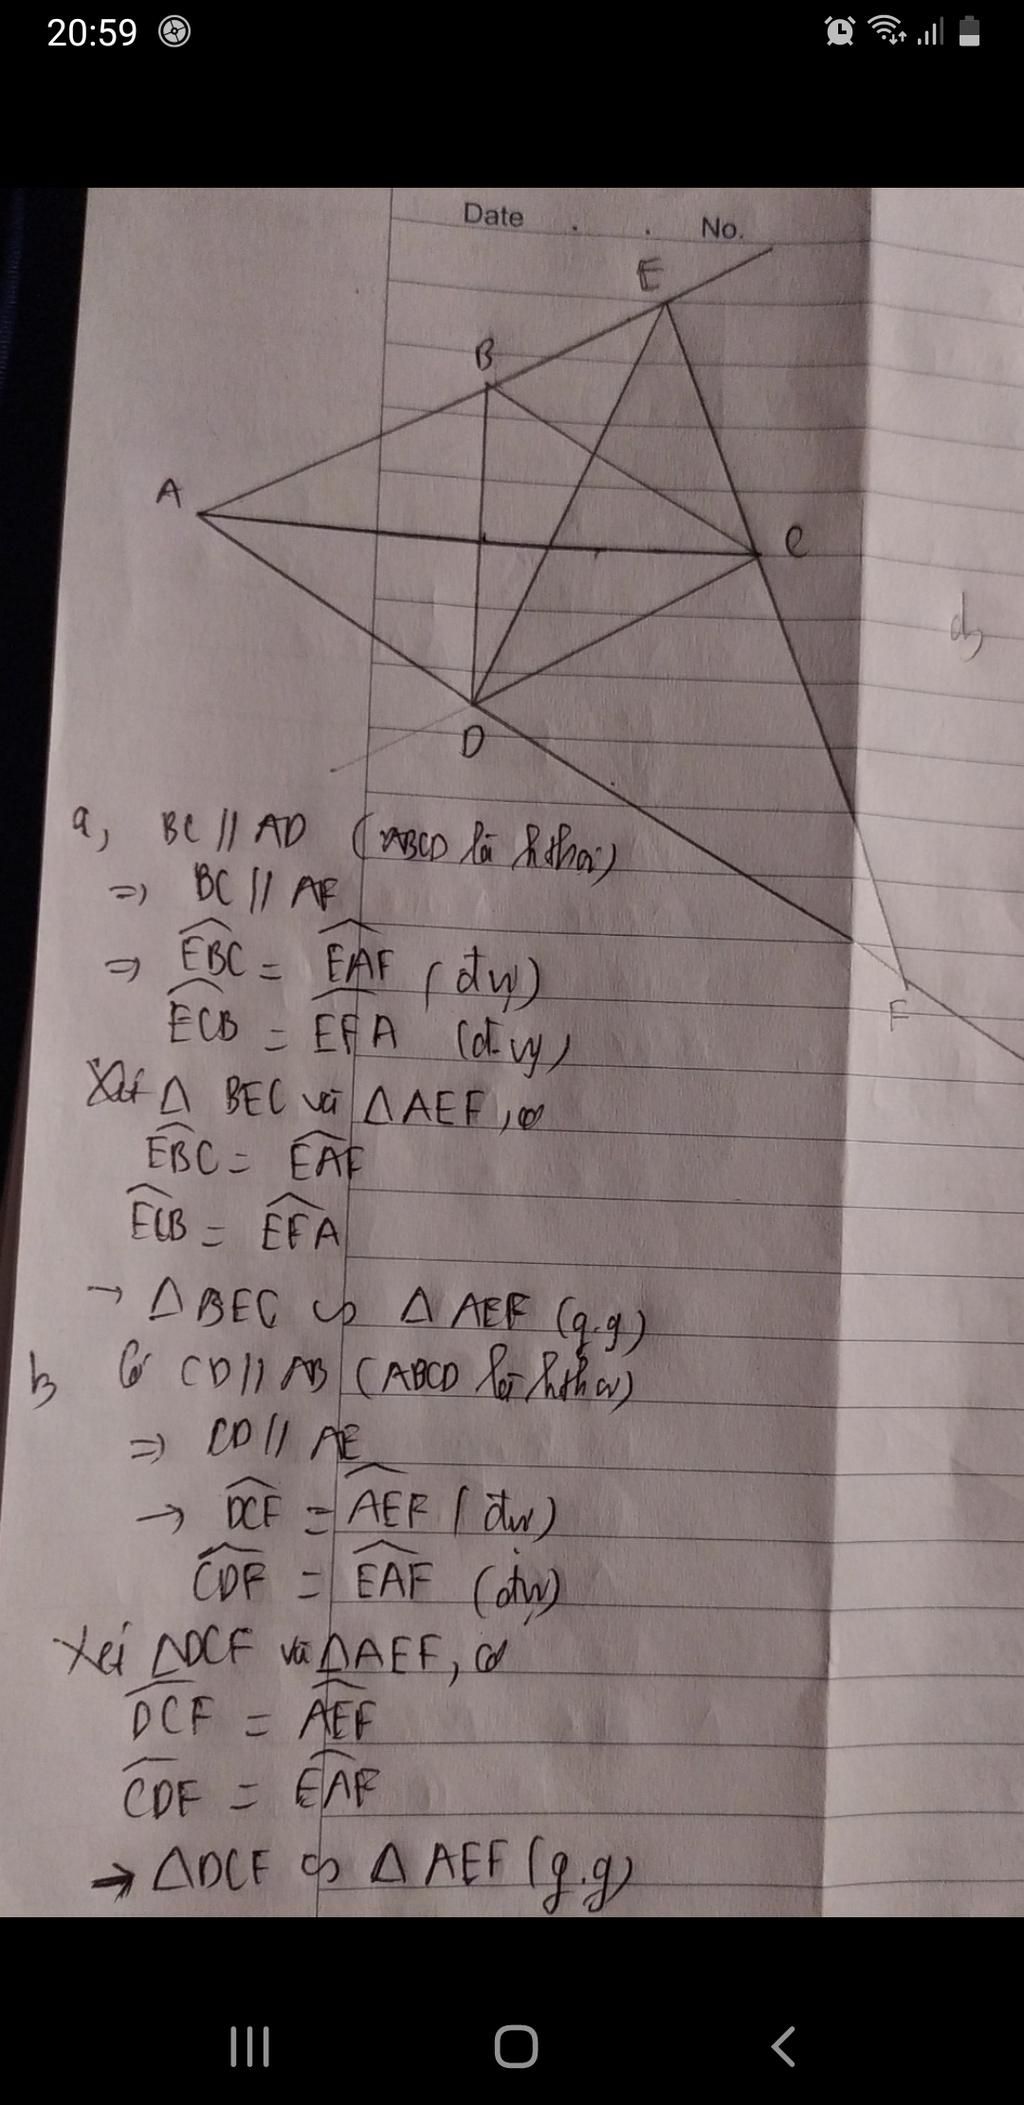 20:59
Date . . No.
E
B
A
C
D
F
a, BC // AD (ABCD là hthoi)
=> BC // AF
=> EBC = EAF (đvị)
ECB = EFA (đvị)
Xét Δ BEC và Δ AEF, có
EBC = EAF
ECB = EFA
→ Δ BEC ∽ Δ AEF (g.g)
b, Có CD // AB (ABCD là hthoi)
=> CD // AE
→ DCF = AEF (đvị)
CDF = EAF (đvị)
Xét ΔDCF và ΔAEF, có
DCF = AEF
CDF = EAF
→ ΔDCF ∽ Δ AEF (g.g)